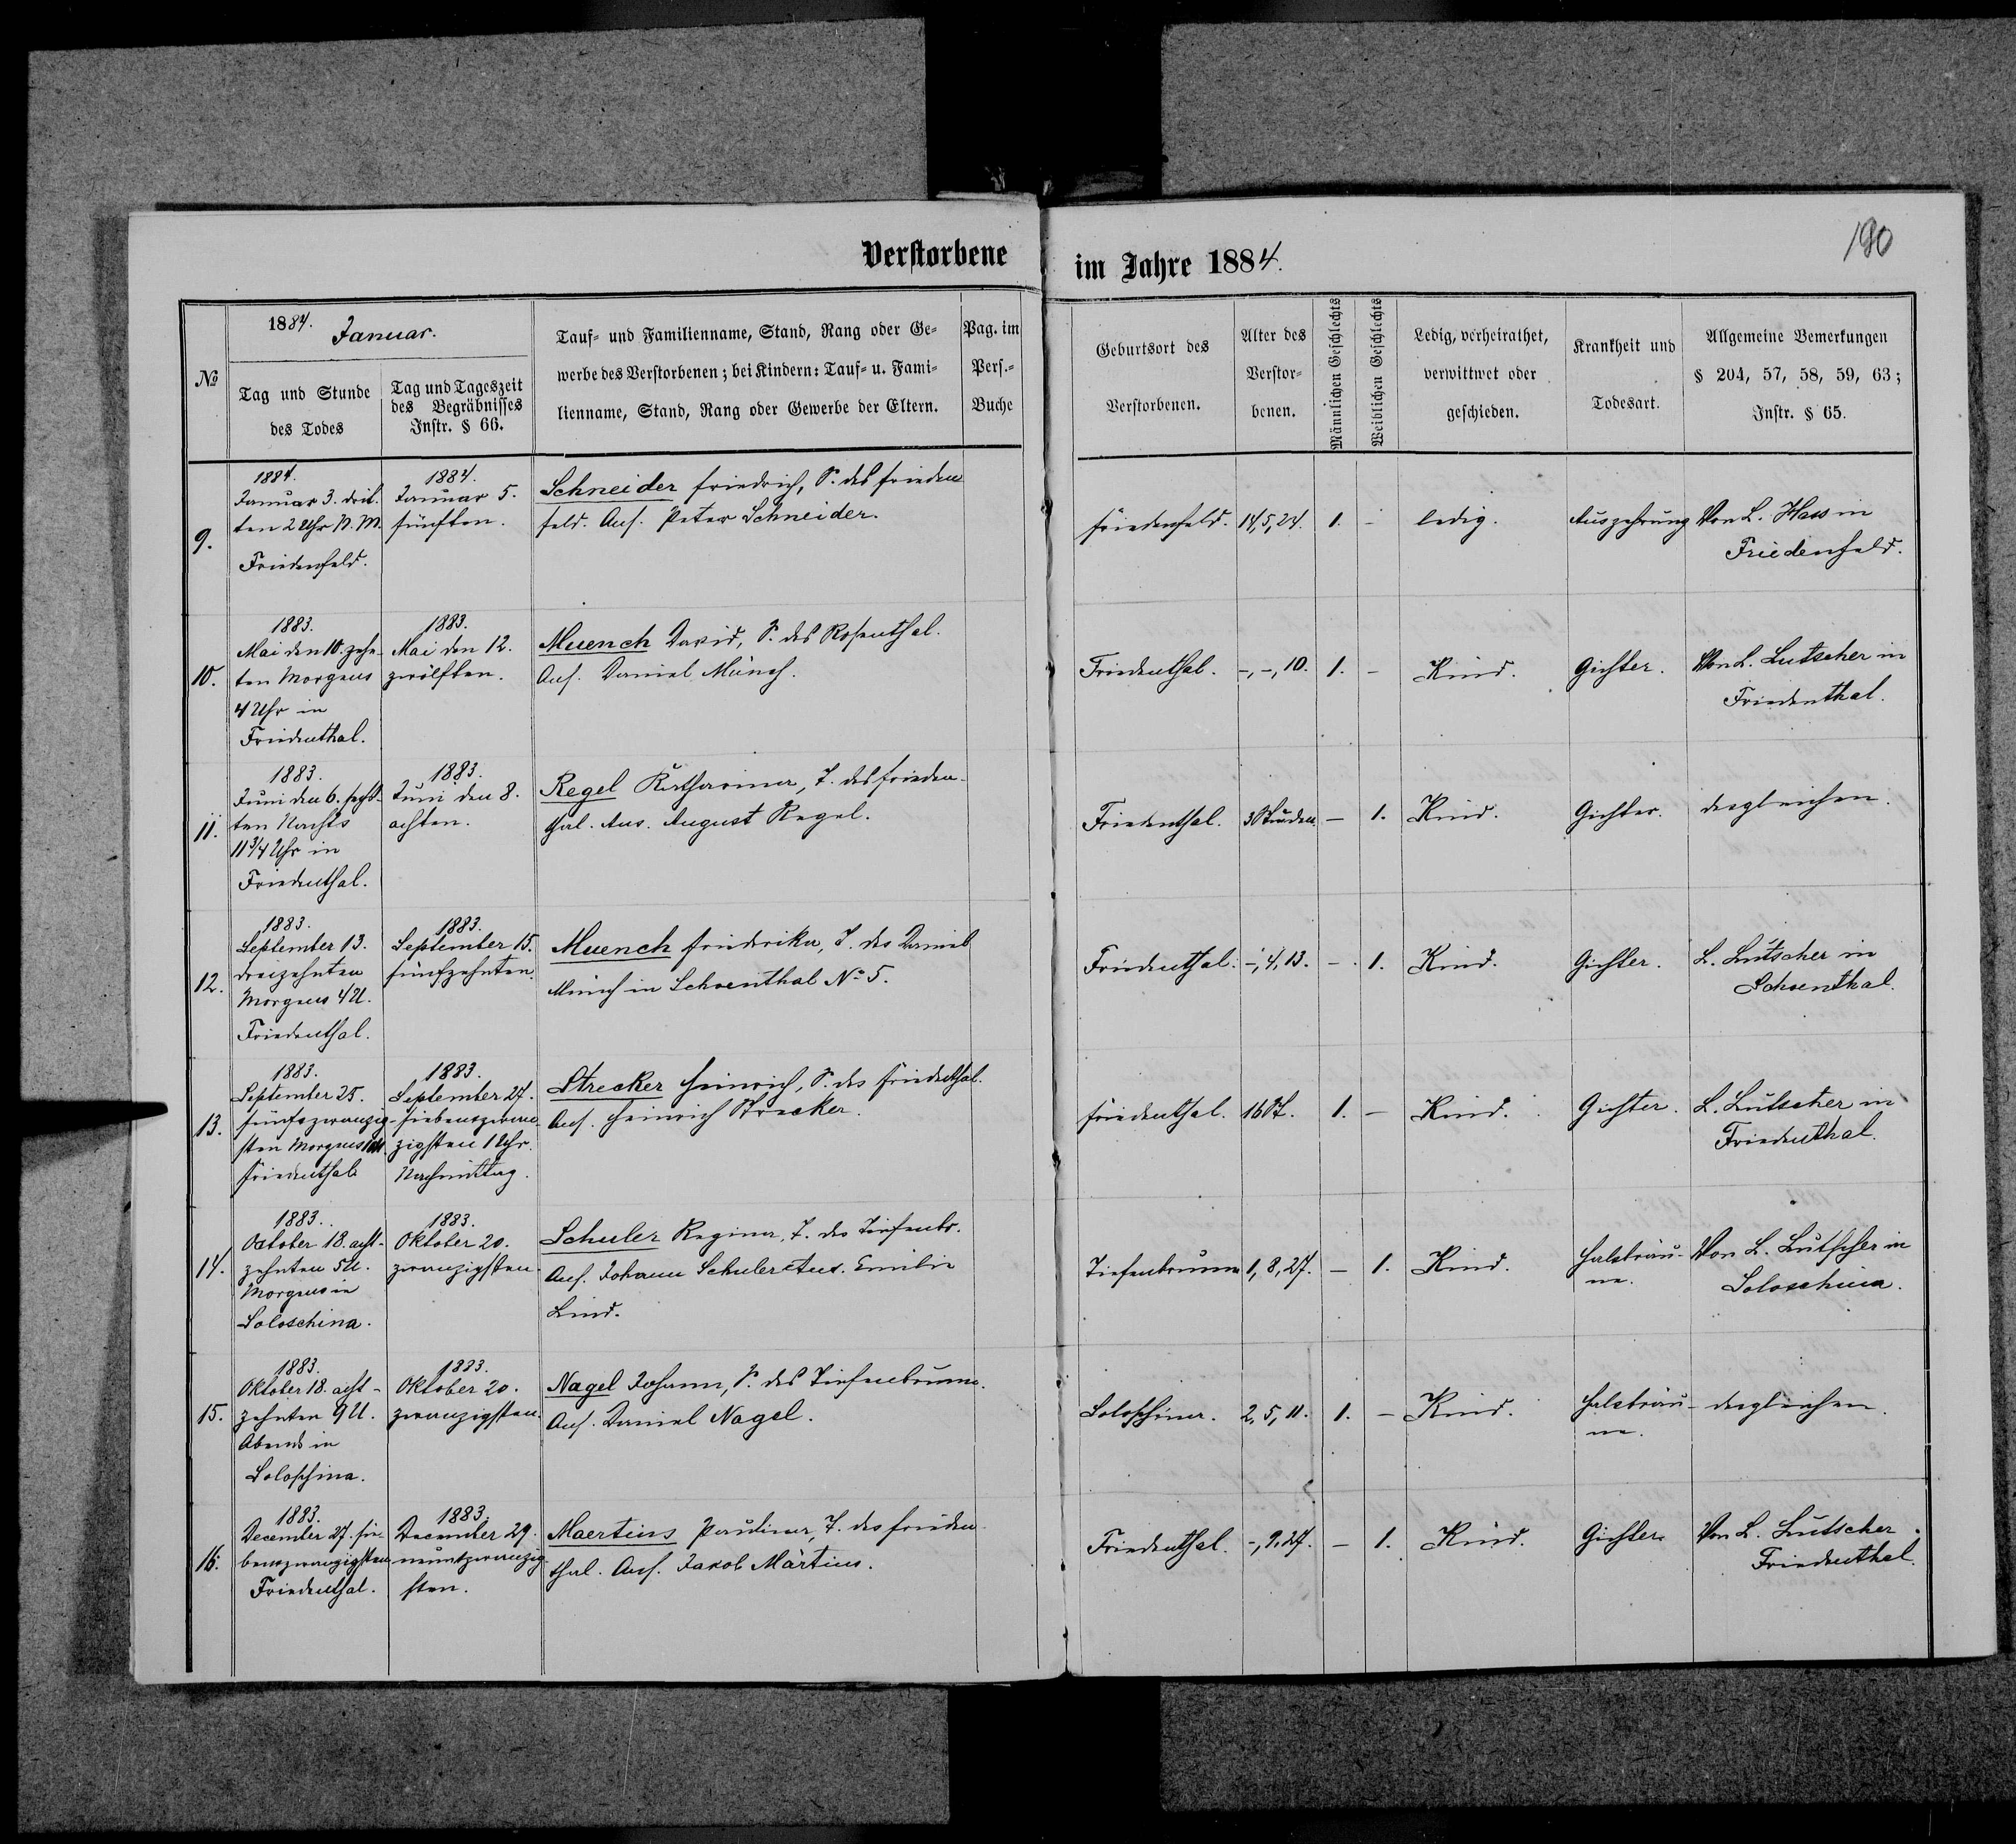 Verstorbene im Jahre 1884.
190
№
1884. Januar.
Tag und Stunde
des Todes
Tag und Tageszeit
des Begräbnisses
Instr. § 66.
Tauf- und Familienname, Stand, Rang oder Ge-
werbe des Verstorbenen; bei Kindern: Tauf- u. Fami-
lienname, Stand, Rang oder Gewerbe der Eltern.
Pag. im
Pers.-
Buche
Geburtsort des
Verstorbenen.
Alter des
Verstor-
benen.
Männlichen Geschlechts
Weiblichen Geschlechts
Ledig, verheirathet,
verwittwet oder
geschieden.
Krankheit und
Todesart.
Allgemeine Bemerkungen
§ 204, 57, 58, 59, 63;
Instr. § 65.
9.
1884.
Januar 3. drit-
ten 2 Uhr N. M.
Friedenfeld.
1884.
Januar 5.
fünften.
Schneider Friedrich, S. des Frieden
feld. Ans. Peter Schneider.
Friedenfeld.
14, 5, 24.
1.
-
ledig.
Auszehrung
Von L. Hass in
Friedenfeld.
10.
1883.
Mai den 10. zehn-
ten Morgens
4 Uhr in
Friedenthal.
1883.
Mai den 12.
zwölften.
Muench David, S. des Rosenthal.
Ans. Daniel Münch.
Friedenthal.
-, -, 10.
1.
-
Kind.
Gichter.
Von L. Lutscher in
Friedenthal.
11.
1883.
Juni den 6. sechs-
ten Nachts
11 3/4 Uhr in
Friedenthal.
1883.
Juni den 8.
achten.
Regel Katharina, T. des Frieden-
thal. Ans. August Regel.
Friedenthal.
3 Stunden.
-
1.
Kind.
Gichter.
desgleichen.
12.
1883.
September 13.
dreizehnten
Morgens 4 U.
Friedenthal.
1883.
September 15.
fünfzehnten.
Muench Friederika, T. des Daniel
Münch in Schoenthal № 5.
Friedenthal.
-, 4, 13.
-
1.
Kind.
Gichter.
L. Lutscher in
Schoenthal.
13.
1883.
September 25.
fünfzwanzig-
sten Morgens
Friedenthal
1883.
September 27.
siebenzwan-
zigsten 1 Uhr.
Nachmittag.
Strecker Heinrich, S. des Friedenthal.
Ans. Heinrich Strecker.
Friedenthal.
16 St.
1.
-
Kind.
Gichter.
L. Lutscher in
Friedenthal.
14.
1883.
October 18. acht-
zehnten 5 U.
Morgens in
Soloschina.
1883.
Oktober 20.
zwanzigsten.
Schuler Regina, T. des Tiefenbr.
Ans. Johann Schuler Emilie
Lind.
Tiefenbrunn
1, 8, 27.
-
1.
Kind.
Halsbräu-
ne.
Von L. Lutscher in
Soloschina.
15.
1883.
Oktober 18. acht-
zehnten 9 U.
Abends in
Soloschina.
1883.
Oktober 20.
zwanzigsten.
Nagel Johann, S. des Tiefenbrunn.
Ans. Daniel Nagel.
Soloschina.
2, 5, 11.
1.
-
Kind.
Halsbräu-
ne.
desgleichen.
16.
1883.
December 27. sie-
benzwanzigsten
Friedenthal.
1883.
December 29.
neunzwanzig-
sten.
Maertins Paulina, T. des Frieden-
thal. Ans. Jakob Märtins.
Friedenthal.
-, 9, 27.
-
1.
Kind.
Gichter.
Von L. Lutscher
Friedenthal.